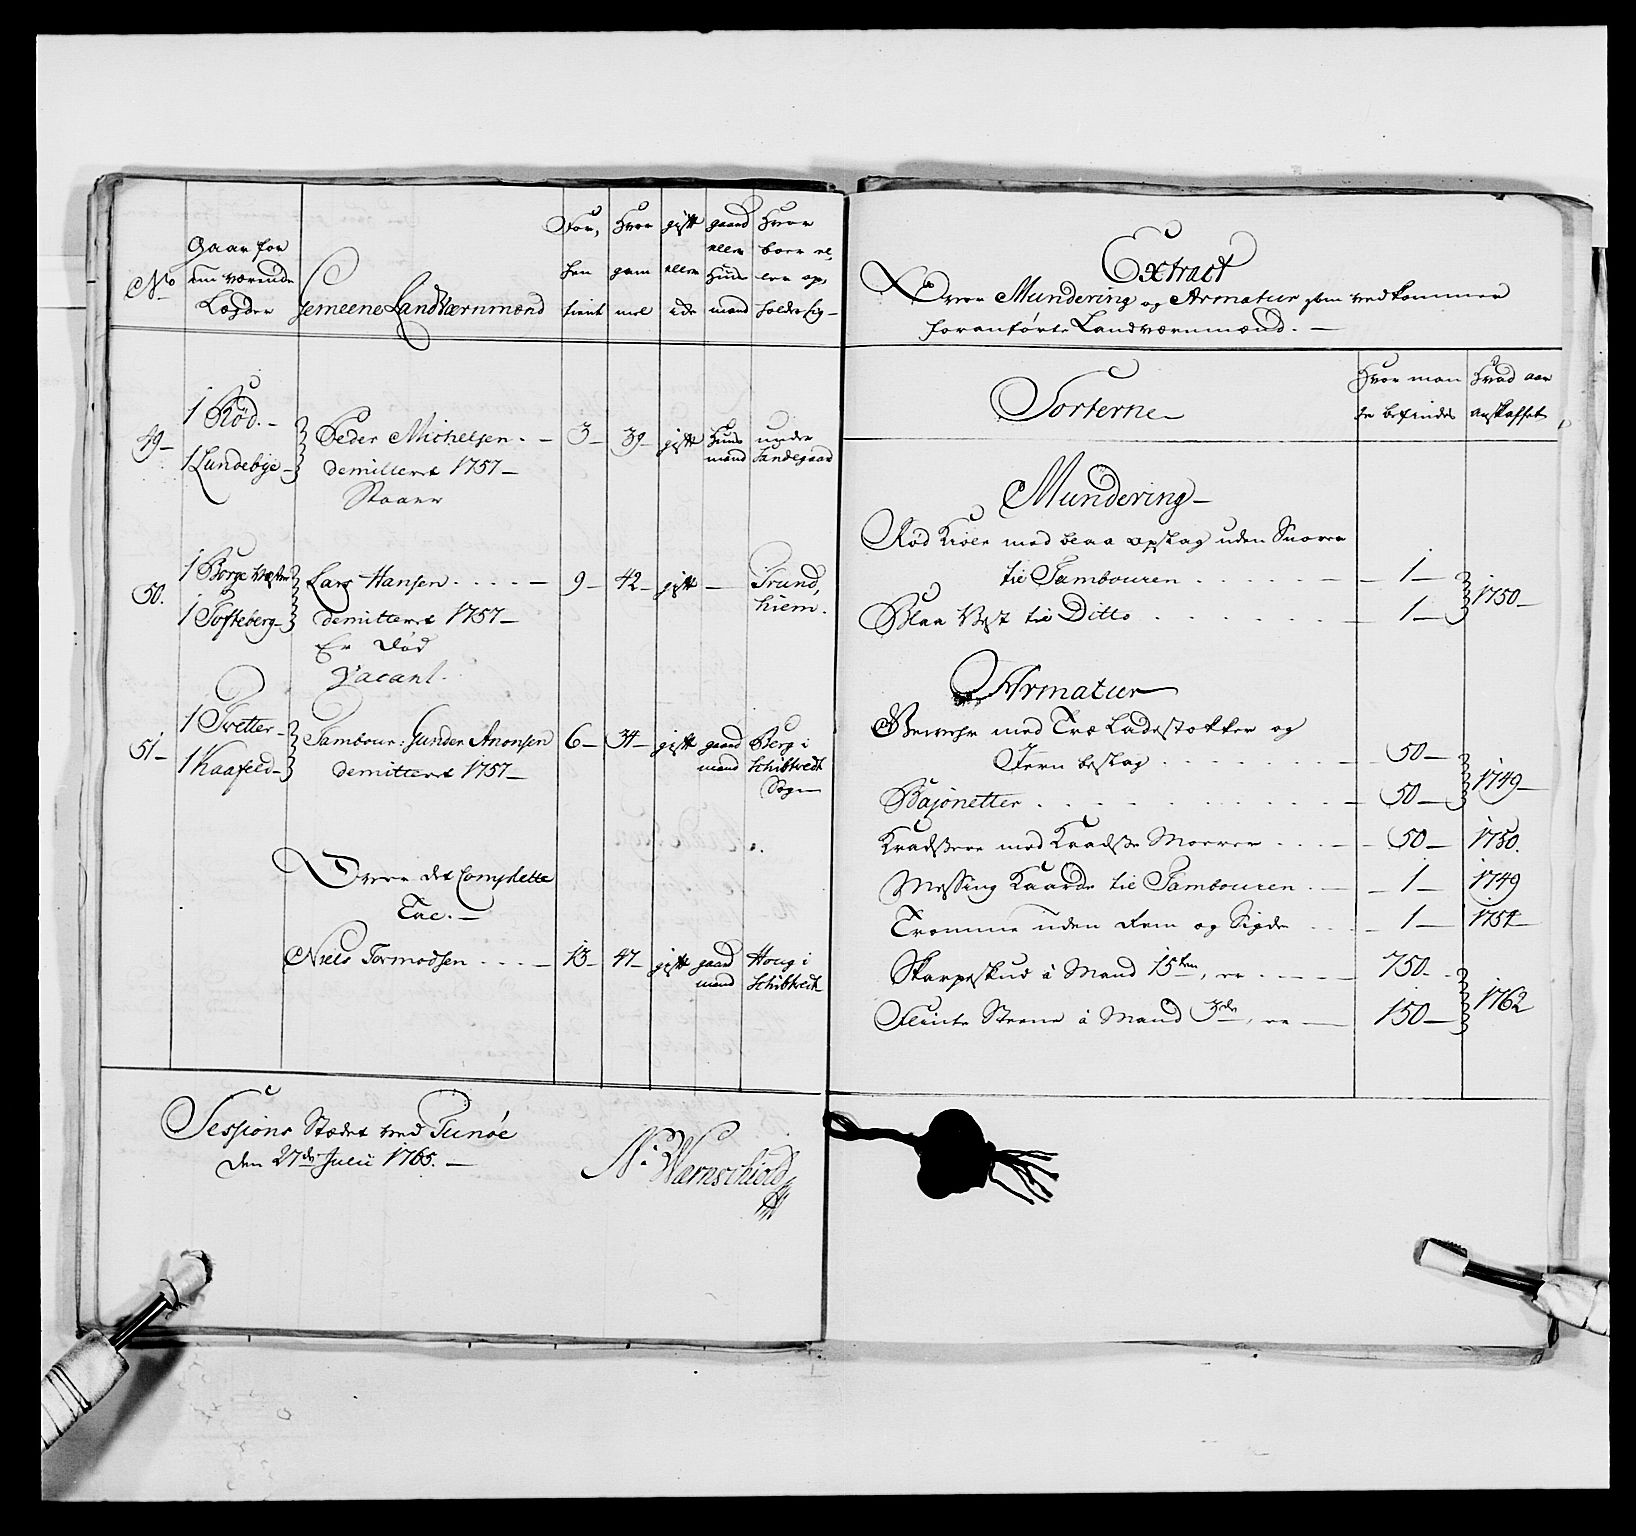 No
Gaar for
nu værende
Lægder
Gemeene Landværnmænd
For,
hen
tient
Hvor
gam
mel
gift
eller
ide
gaard
eller
Huus
mand
Hvor
boer el,
ler op,
holder sig
49
1 Rød
1 Lundebye
Peder Michelsen
demitteret 1757
Staaer
3
39
gift
Huus
mand
under
Sandegaard
50.
1 Borge Vester
1 Tofteberg
Lars Hansen
demitteret 1757
Er død
Vacant.
9
42
gift
Trund,
hiem.
51
1 Tvetter
1 Kaafeld
Tambour: Gunder Anonsen
demitteret 1757
6
34
gift
gaard
mand
Berg i
Schibtvedt
Sogn
Over det Complette
Tal.
Niels Tormodsen
13
47
gift
gaard
mand
Houg i
Schibtvedt
Sessions Stædet ved Tunøe
den 27de Julii 1765.
N: Wærnschiold
Extract
Over Mundering og Armatur som vedkommer
foranførte Landværnmænd.
Sorterne
Hvor man
ge befindes
Hvad aar
anskaffet
Mundering
Rød Kiole med blaa opslag uden Snorer
til Tambouren 1
Blaa Vest til Ditto 1
1750
Armatur
Gewehr med Træ Ladestokker og
Jern beslag 50
Bajonetter 50
1749
Kradsere med Kradse Skoever 50 1750.
Messing Kaarde til Tambouren 1 1749
Tromme uden Rem og Sigde 1 1754
Skarpeskud á Mand 15ten, er 750
Flinte Steene á Mand 3de, er 150
1762